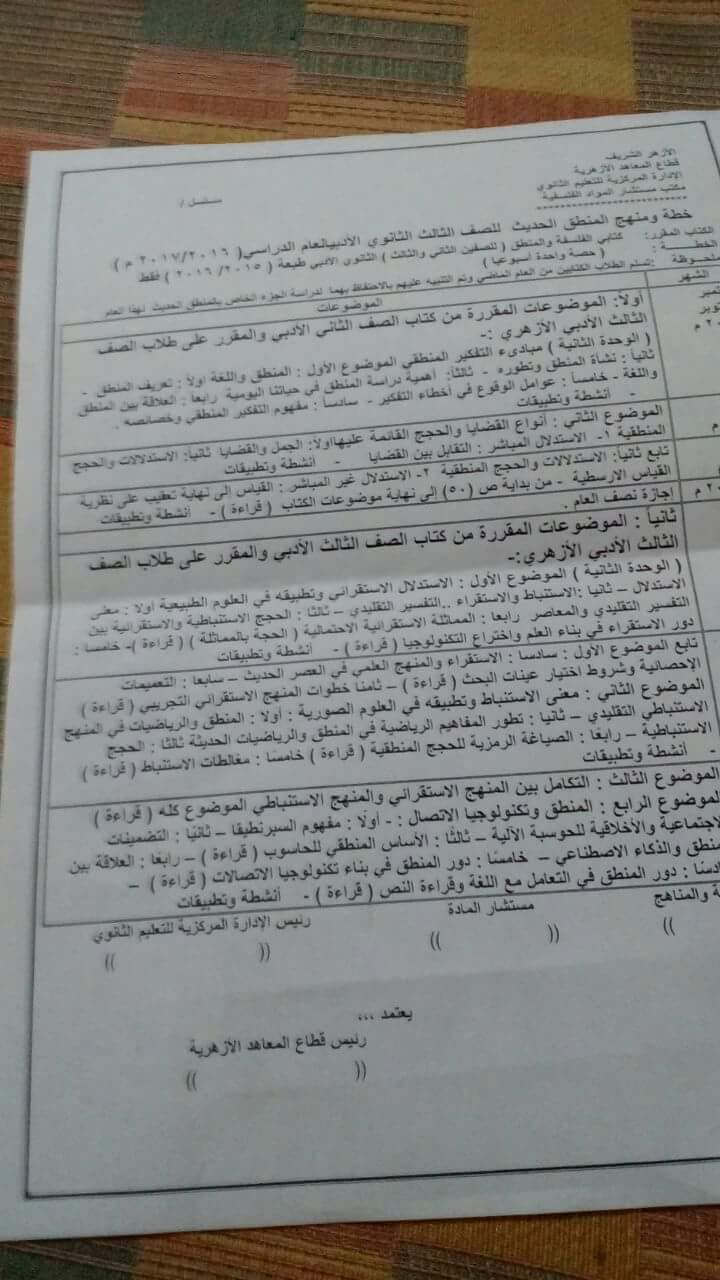 الأزهر الشريف
قطاع المعاهد الأزهرية
الإدارة المركزية للتعليم الثانوي
مكتب مستشار المواد الفلسفية
مسلسل /
خطة ومنهج المنطق الحديث للصف الثالث الثانوي الأدبي العام الدراسي( ٢٠١٧/٢٠١٦ م )
الكتاب المقرر: كتابي الفلسفة والمنطق ( للصفين الثاني والثالث ) الثانوي الأدبي طبعة ( ٢٠١٥/ ٢٠١٦ ) فقط
الخطة : ( حصة واحدة أسبوعيا )
ملحوظة :تسلم الطلاب الكتابين من العام الماضي وتم التنبيه عليهم بالاحتفاظ بهما لدراسة الجزء الخاص بالمنطق الحديث لهذا العام
الشهر
الموضوعات
أولاً: الموضوعات المقررة من كتاب الصف الثاني الأدبي والمقرر على طلاب الصف
الثالث الأدبي الأزهري :-
( الوحدة الثانية ) مبادىء التفكير المنطقي الموضوع الأول : المنطق واللغة أولاً : تعريف المنطق -
ثانياً : نشأة المنطق وتطوره - ثالثاً: أهمية دراسة المنطق في حياتنا اليومية رابعاً : العلاقة بين المنطق
واللغة - خامساً : عوامل الوقوع في أخطاء التفكير - سادساً : مفهوم التفكير المنطقي وخصائصه .
- أنشطة وتطبيقات
الموضوع الثاني : أنواع القضايا والحجج القائمة عليها أولاً: الجمل والقضايا ثانياً: الاستدلالات والحجج
المنطقية ١- الاستدلال المباشر : التقابل بين القضايا - أنشطة وتطبيقات
تابع ثانياً: الاستدلالات والحجج المنطقية ٢- الاستدلال غير المباشر : القياس إلى نهاية تعقيب على نظرية
القياس الارسطية - من بداية ص (٥٠) إلى نهاية موضوعات الكتاب ( قراءة ) - أنشطة وتطبيقات
إجازة نصف العام .
ثانياً : الموضوعات المقررة من كتاب الصف الثالث الأدبي والمقرر على طلاب الصف
الثالث الأدبي الأزهري:-
( الوحدة الثانية ) الموضوع الأول : الاستدلال الاستقرائي وتطبيقه في العلوم الطبيعية أولا : معنى
الاستدلال – ثانيا :الاستنباط والاستقراء ..التفسير التقليدي – ثالثا : الحجج الاستنباطية والاستقرائية بين
التفسير التقليدي والمعاصر رابعا : المماثلة الاستقرائية الاحتمالية ( الحجة بالمماثلة ) ( قراءة )- خامسا :
دور الاستقراء في بناء العلم واختراع التكنولوجيا ( قراءة ) - أنشطة وتطبيقات
تابع الموضوع الأول : سادسا : الاستقراء والمنهج العلمي في العصر الحديث – سابعا : التعميمات
الإحصائية وشروط اختيار عينات البحث ( قراءة ) – ثامنا خطوات المنهج الاستقرائي التجريبي ( قراءة )
الموضوع الثاني : معنى الاستنباط وتطبيقه في العلوم الصورية : أولا : المنطق والرياضيات في المنهج
الاستنباطي التقليدي – ثانيا : تطور المفاهيم الرياضية في المنطق والرياضيات الحديثة ثالثًا : الحجج
الاستنباطية – رابعًا : الصياغة الرمزية للحجج المنطقية ( قراءة ) خامسًا : مغالطات الاستنباط ( قراءة )
- أنشطة وتطبيقات
الموضوع الثالث : التكامل بين المنهج الاستقرائي والمنهج الاستنباطي الموضوع كله ( قراءة )
الموضوع الرابع : المنطق وتكنولوجيا الاتصال : - أولًا : مفهوم السبرنطيقا – ثانيًا : التضمينات
الاجتماعية والأخلاقية للحوسبة الآلية – ثالثًا : الأساس المنطقي للحاسوب ( قراءة ) – رابعًا : العلاقة بين
المنطق والذكاء الاصطناعي – خامسًا : دور المنطق في بناء تكنولوجيا الاتصالات ( قراءة ) –
سادسًا : دور المنطق في التعامل مع اللغة وقراءة النص ( قراءة ) - أنشطة وتطبيقات
والمناهج مستشار المادة رئيس الإدارة المركزية للتعليم الثانوي
(( )) (( ))
يعتمد ,,,
رئيس قطاع المعاهد الأزهرية
(( ))